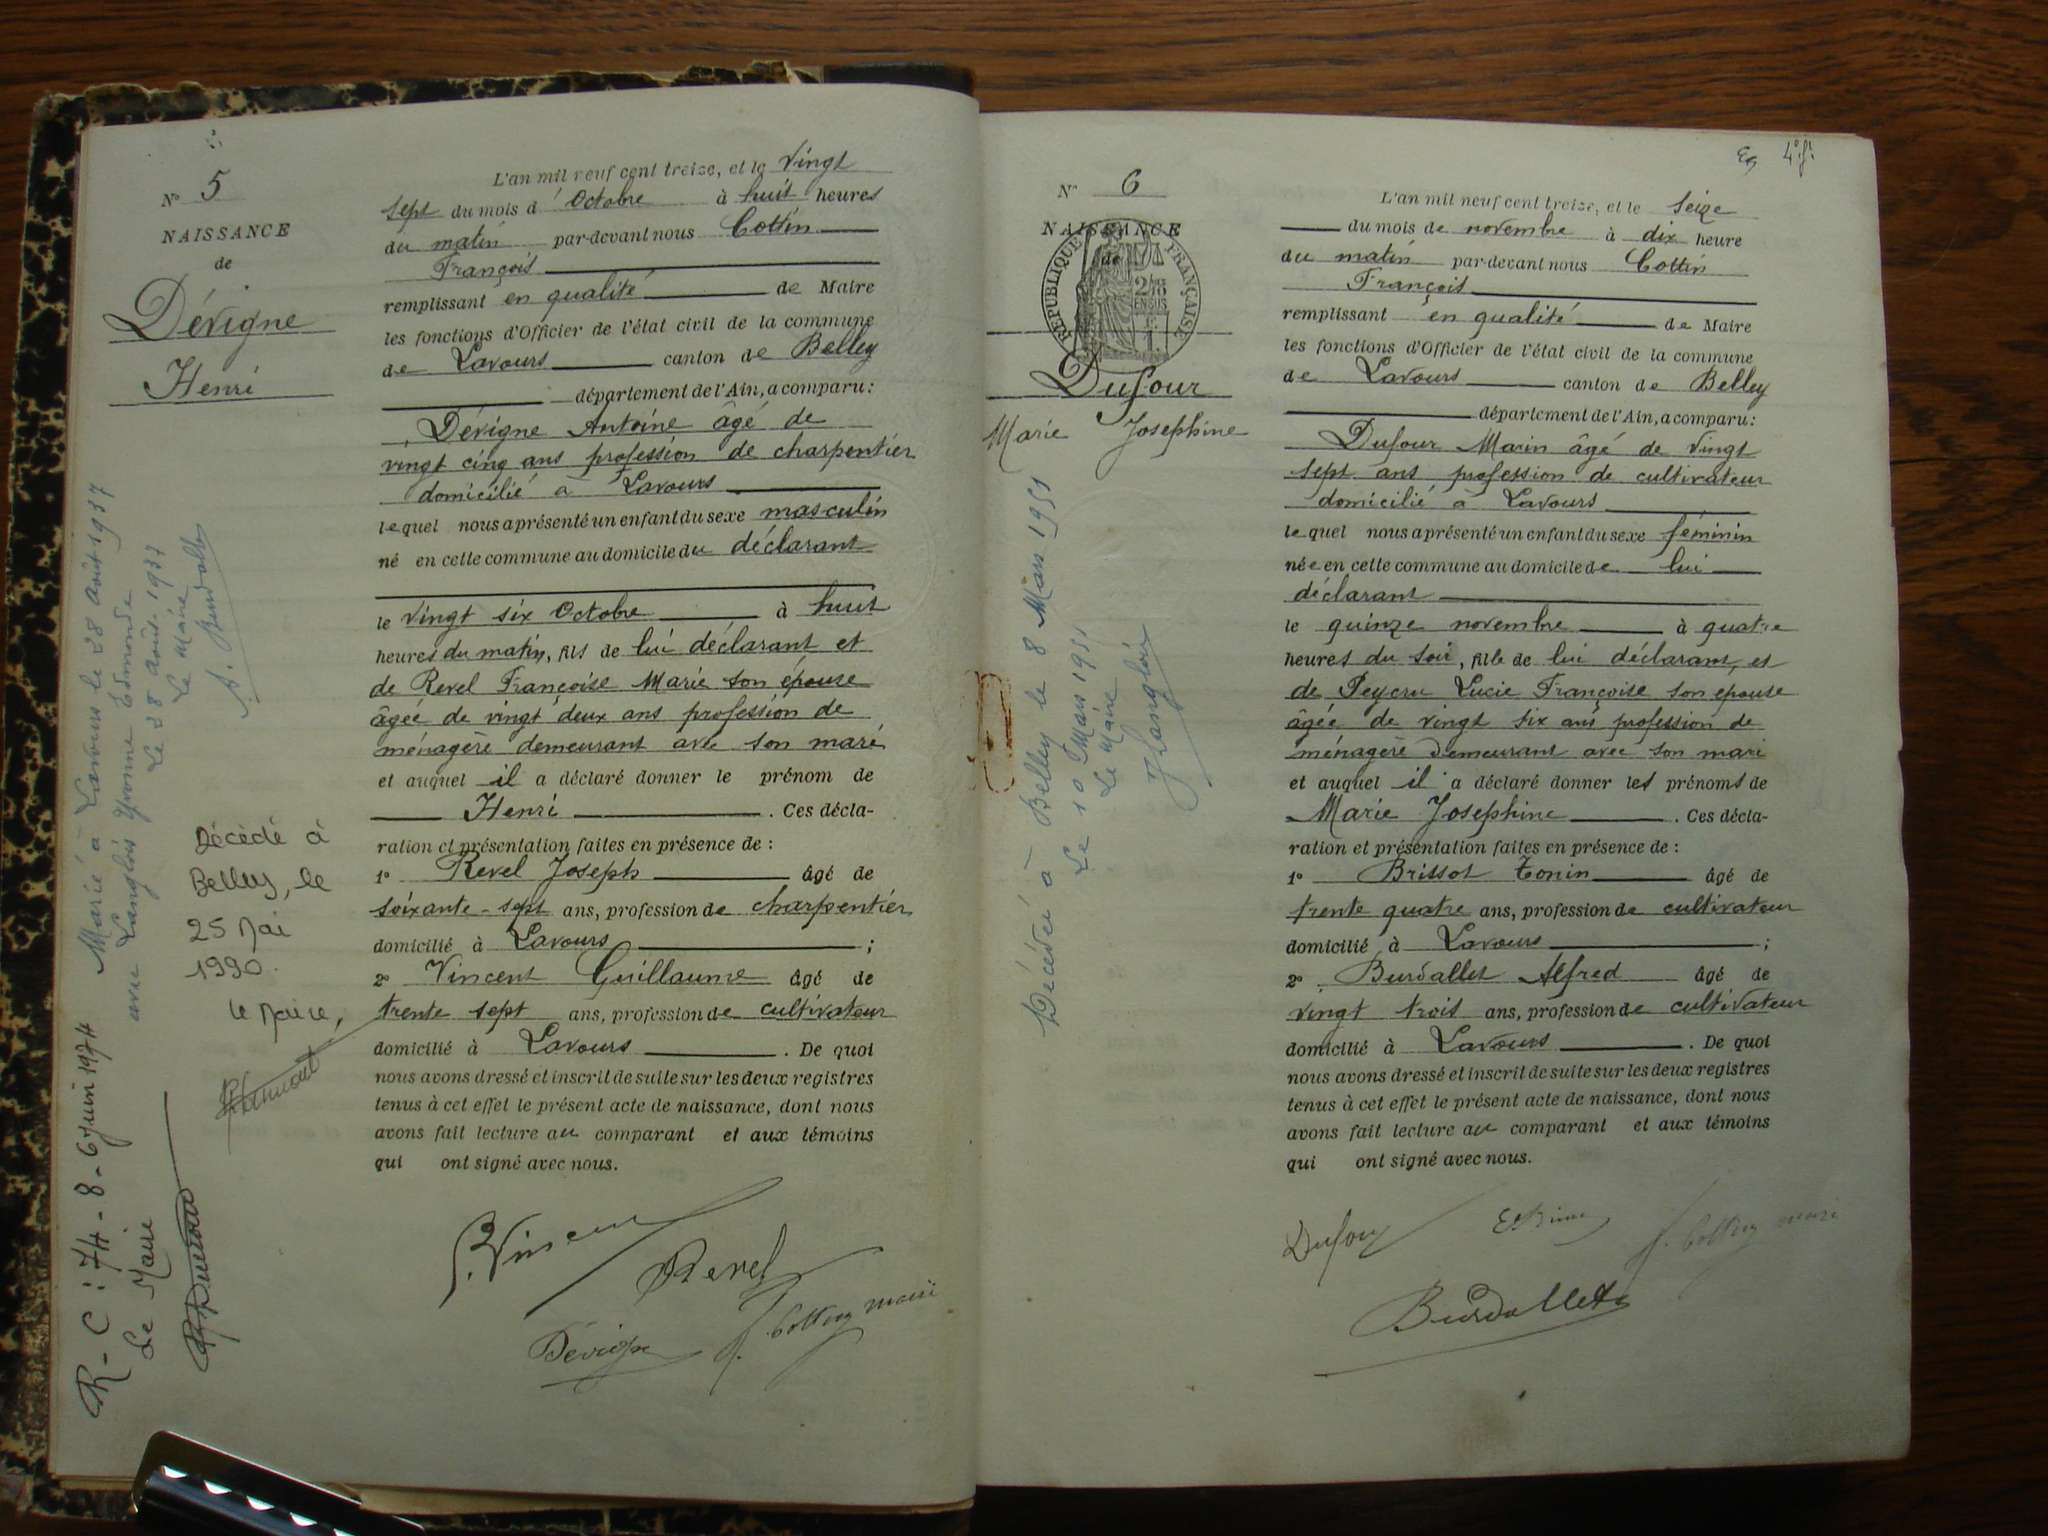 N° 5
NAISSANCE
de
Dévigne
Henri
Marié à Lavours le 28 Août 1937
avec Langlois Yvonne Edmonde
Le 28 Août 1937
Le Maire
Décédé à
Belley, le
25 Mai
1990.
Le Maire,
R-C: 74-8-6 juin 1974
Le Maire
L'an mil neuf cent treize, et le Vingt
sept du mois d'Octobre à huit heures
du matin par-devant nous Cottin
François
remplissant en qualité de Maire
les fonctions d'Officier de l'état civil de la commune
de Lavours canton de Belley
département de l'Ain, a comparu:
Dévigne Antoine âgé de
vingt cinq ans profession de charpentier
domicilié à Lavours
lequel nous a présenté un enfant du sexe masculin
né en cette commune au domicile du déclarant
le vingt six Octobre à huit
heures du matin, fils de lui déclarant et
de Revel Françoise Marie son épouse
âgée de vingt deux ans profession de
ménagère demeurant avec son mari
et auquel il a déclaré donner le prénom de
Henri. Ces décla-
ration et présentation faites en présence de :
1° Revel Joseph âgé de
soixante-sept ans, profession de charpentier
domicilié à Lavours ;
2° Vincent Guillaume âgé de
trente sept ans, profession de cultivateur
domicilié à Lavours. De quoi
nous avons dressé et inscrit de suite sur les deux registres
tenus à cet effet le présent acte de naissance, dont nous
avons fait lecture au comparant et aux témoins
qui ont signé avec nous.
Vincent
Revel
Dévigne
f. Cottin maire
4e f.
N° 6
NAISSANCE
de
RÉPUBLIQUE FRANÇAISE
Dufour
Marie Josephine
Décédée à Belley le 8 Mars 1951
Le 10 Mars 1951
Le Maire
J Langlois
L'an mil neuf cent treize, et le seize
du mois de novembre à dix heure
du matin par-devant nous Cottin
François
remplissant en qualité de Maire
les fonctions d'Officier de l'état civil de la commune
de Lavours canton de Belley
département de l'Ain, a comparu:
Dufour Marin âgé de vingt
sept ans profession de cultivateur
domicilié à Lavours
lequel nous a présenté un enfant du sexe féminin
née en cette commune au domicile de lui
déclarant
le quinze novembre à quatre
heures du soir, fille de lui déclarant, et
de Peycru Lucie Françoise son épouse
âgée de vingt six ans profession de
ménagère demeurant avec son mari
et auquel il a déclaré donner les prénoms de
Marie Josephine. Ces décla-
ration et présentation faites en présence de :
1° Brissot Tonin âgé de
trente quatre ans, profession de cultivateur
domicilié à Lavours ;
2° Burdallet Alfred âgé de
vingt trois ans, profession de cultivateur
domicilié à Lavours. De quoi
nous avons dressé et inscrit de suite sur les deux registres
tenus à cet effet le présent acte de naissance, dont nous
avons fait lecture au comparant et aux témoins
qui ont signé avec nous.
Dufour
f. Cottin maire
Burdallet